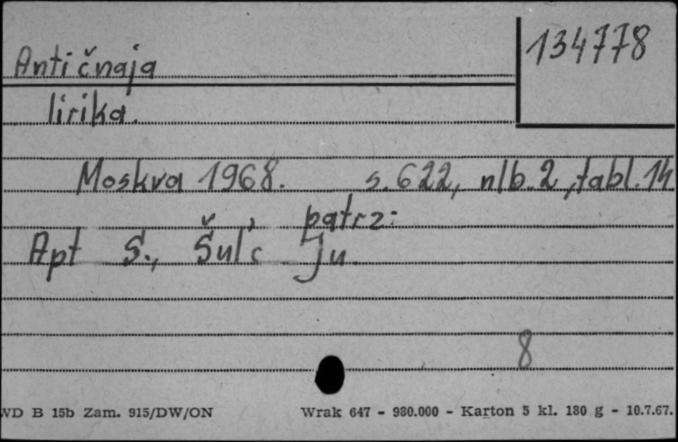 134778
Antičnaja
lirika.
Moskva 1968. s. 622, nlb. 2, tabl. 14
patrz:
Apt S., Šul'c Ju.
8
WD B 15b Zam. 915/DW/ON Wrak 647 - 980.000 - Karton 5 kl. 180 g - 10.7.67.